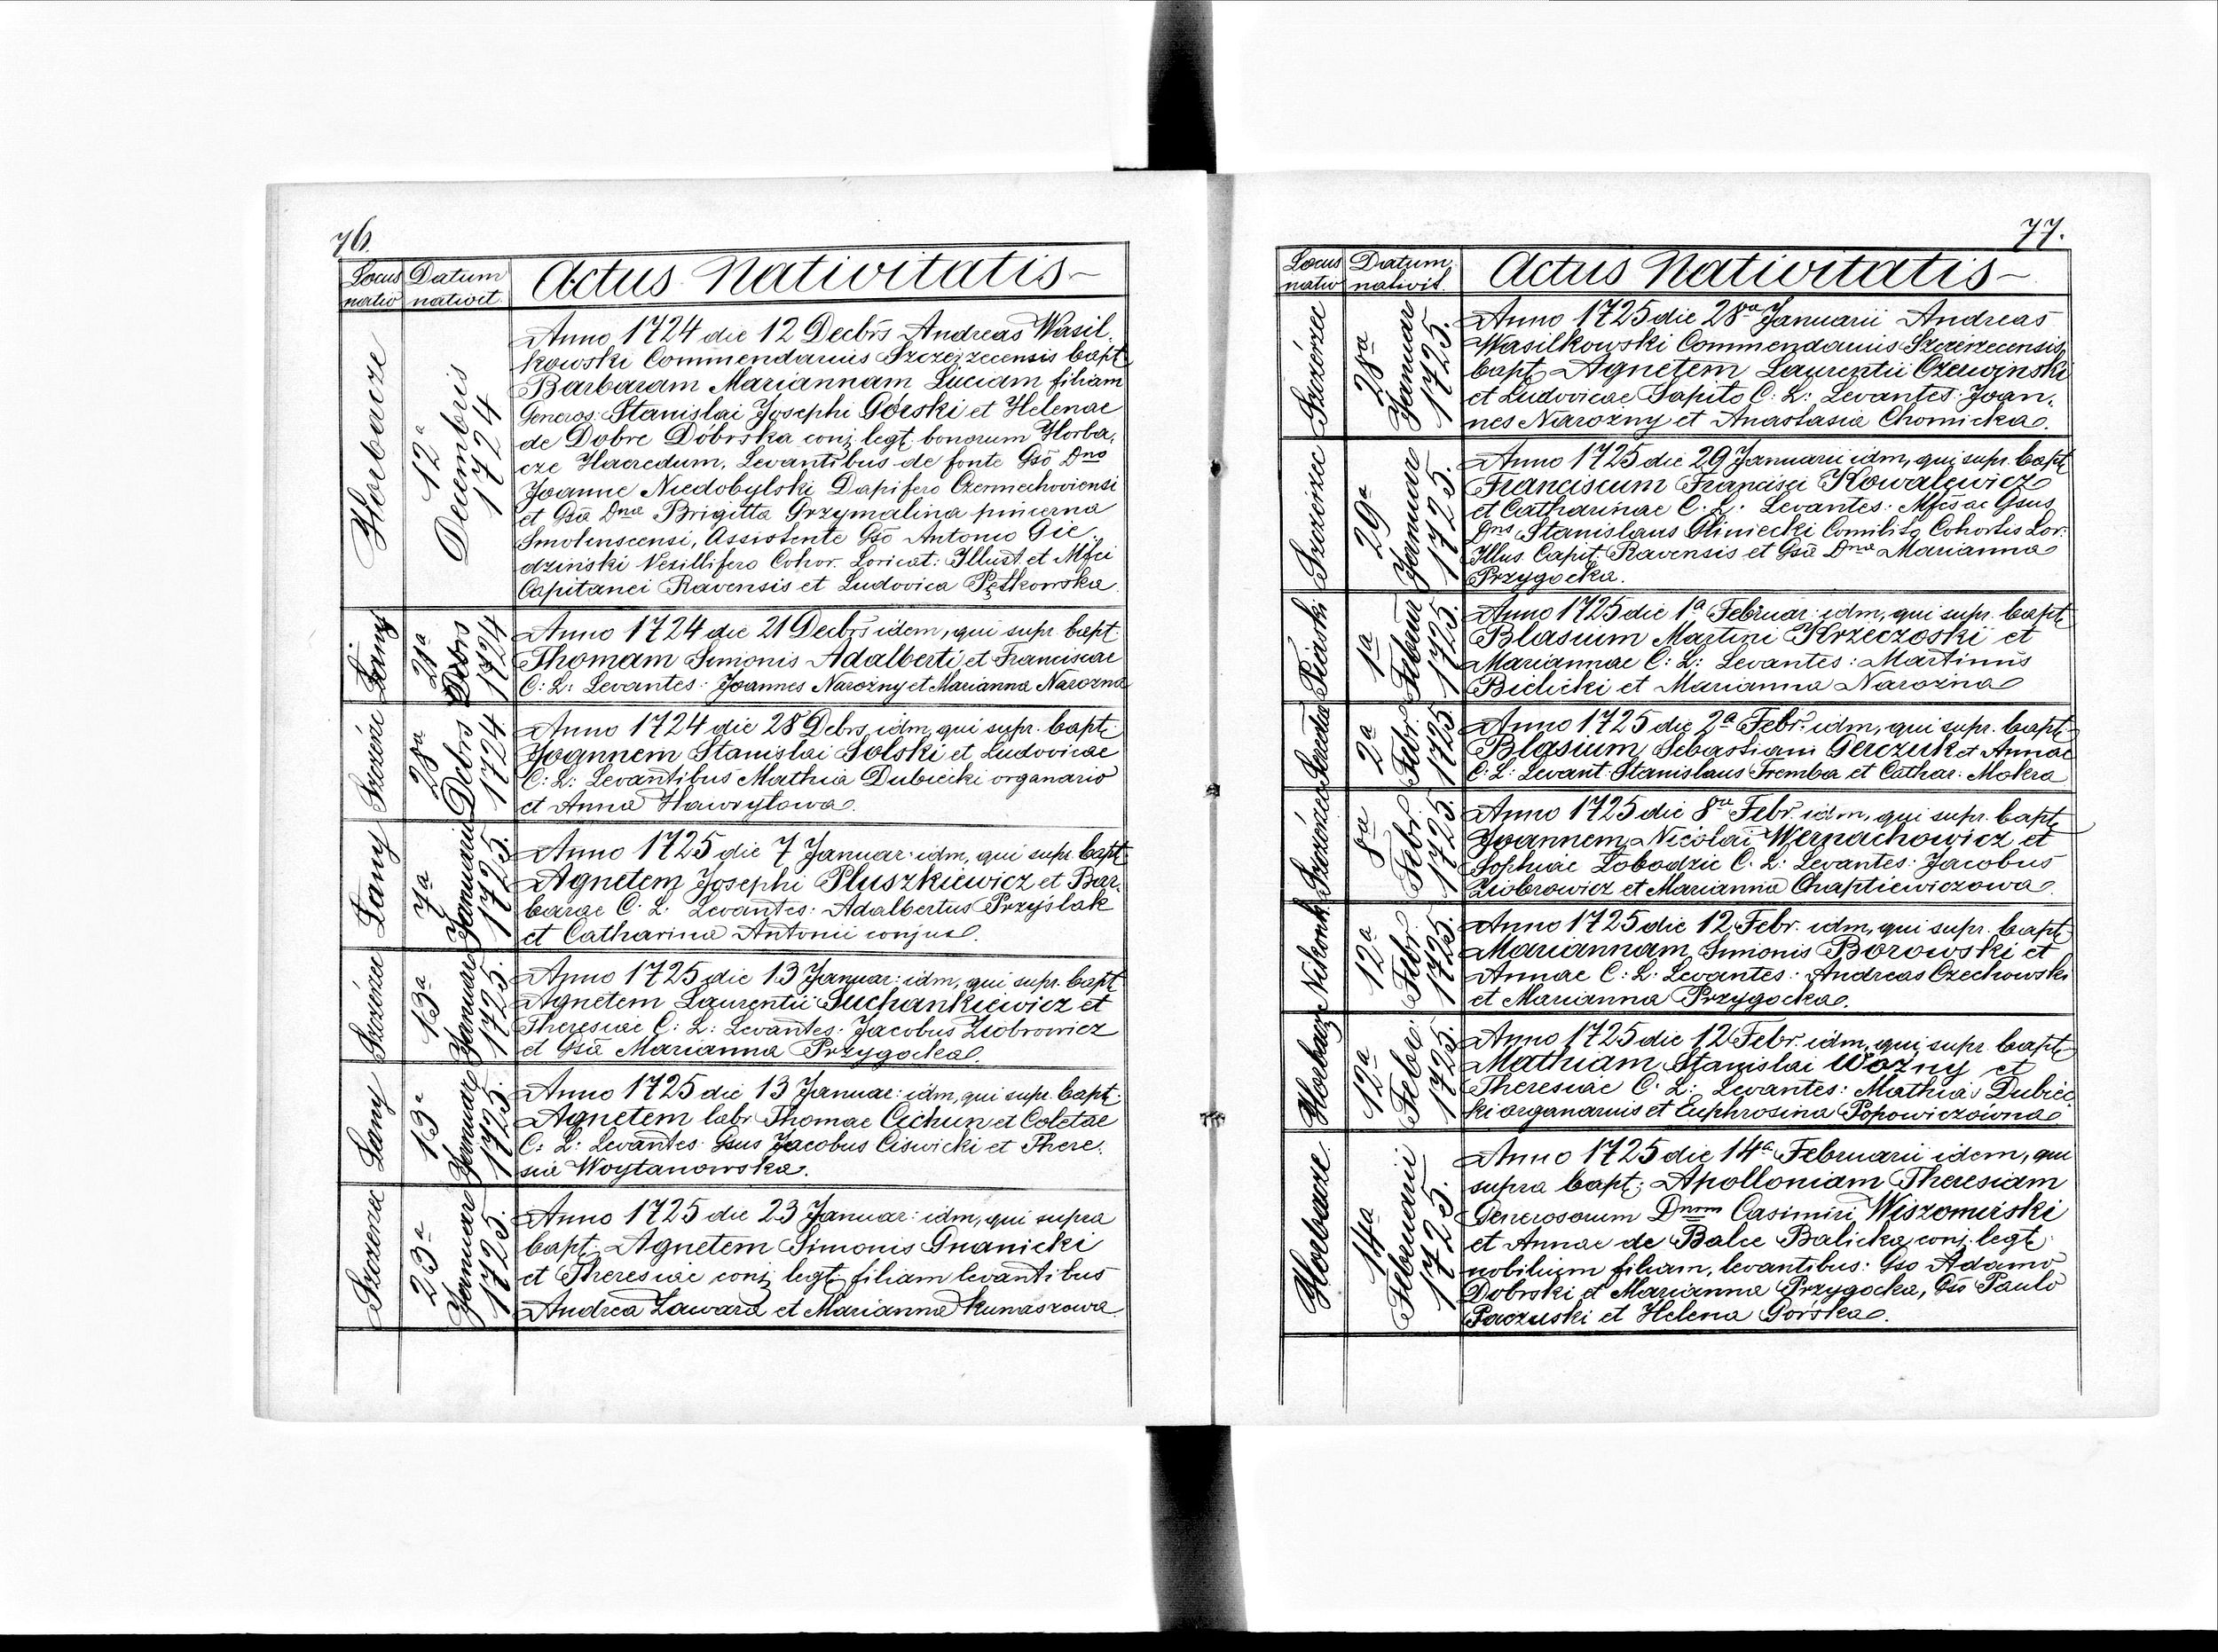 76.
Locus nativ
Datum nativit.
Actus Nativitatis
Horbacze
12a Decembris 1724
Anno 1724 die 12 Decbrs Andreas Wasil-
kowski Commendarius Szczerzecensis bapt.
Barbaram Mariannam Luciam filiam
Generos: Stanislai Josephi Górski et Helenae
de Dobre Dóbrska conj. legt. bonorum Horba-
cze Haeredum. Levantibus de fonte Gsō Dno
Joanne Niedobylski Dapifero Czerniechoviensi
et Gsā Dna Brigitta Grzymalina pincerna
Smolenscensi, Assistente Gsō Antonio Gie-
dzinski Vexillifero Cohor. Loricat: Illust. et Mfci
Capitanei Ravensis et Ludovica Pętkowska
Łany
21a Debrs 1724
Anno 1724 die 21 Decbrs idem, qui supr. bapt.
Thomam Simonis Adalberti et Franciscae
C: L: Levantes: Joannes Narożny et Marianna Narożna
Szczerzec
28a Debrs 1724
Anno 1724 die 28 Debrs idm, qui supr. bapt.
Joannem Stanislai Solski et Ludovicae
C: L: Levantibus Mathia Dubiecki organario
et Anna Hawryłowa.
Łany
7a Januarii 1725.
Anno 1725 die 7 Januar: idm, qui supr. bapt.
Agnetem Josephi Pluszkiewicz et Bar-
barae C. L: Levantes: Adalbertus Przyślak
et Catharina Antonii conjux.
Szczerzec
13a Januar 1725.
Anno 1725 die 13 Januar: idm, qui supr. bapt.
Agnetem Laurentii Suchankiewicz et
Theresiae C: L: Levantes: Jacobus Ziobrowicz
et Gsā Marianna Przygocka.
Łany
13a Januar 1725.
Anno 1725 die 13 Januar: idm, qui supr. bapt.
Agnetem labr Thomae Cichun et Coletae
C: L: Levantes Gsus Jacobus Ciswicki et There-
sia Woytanowska.
Szczerzec
23a Januar 1725.
Anno 1725 die 23 Januar: idm, qui supra
bapt. Agnetem Simonis Gnanicki
et Theresiae conj. legt. filiam levantibus
Andrea Zawara et Marianna Kunaszowa
77.
Locus nativ
Datum nativit.
Actus Nativitatis
Szczérzec
28a Januar 1725.
Anno 1725 die 28a Januarii Andreas
Wasilkowski Commendarius Szczerzecensis
bapt. Agnetem Laurentii Czerwinski
et Ludovicae Sapito C: L: Levantes: Joan-
nes Narożny et Anastasia Chomicka.
Szczerzec
29a Januar 1725.
Anno 1725 die 29 Januarii idm, qui supr. bapt.
Franciscum Francisci Kowalewicz
et Catharinae C. L. Levantes: Mfcs ac Gsus
Dns Stanislaus Gliniecki Comilito Cohortis Lor:
Illus Capit. Ravensis et Gsā Dna Marianna
Przygocka.
Piaski
1a Februa 1725.
Anno 1725 die 1a Februar: idm, qui supr. bapt.
Blasium Martini Krzeczoski et
Mariannae C: L: Levantes: Martinus
Bielicki et Marianna Narożna
Seredne
2a Febr. 1725
Anno 1725 die 2a Febr. idm, qui supr. bapt.
Blasium Sebastiani Gerczuk et Annae
C: L: Levant: Stanislaus Tremba et Cathar: Mokra
Szczérzec
8a Febr 1725.
Anno 1725 die 8a Febr. idm, qui supr. bapt.
Joannem Nicolai Wernachowicz et
Sophiae Łobodzic C. L: Levantes: Jacobus
Ziobrowicz et Marianna Chaptiewiczowa.
Nikonk.
12a Febr. 1725.
Anno 1725 die 12 Febr. idm, qui supr. bapt.
Mariannam Simonis Borowski et
Annae C: L: Levantes: Andreas Czechowski
et Marianna Przygocka.
Horbacze
12a Febr. 1725.
Anno 1725 die 12 Febr. idm, qui supr. bapt.
Mathiam Stanislai Woźny et
Theresiae C: L: Levantes: Mathias Dubiec-
ki organarius et Euphrosina Popowiczówna
Horbacze
14a Februarii 1725.
Anno 1725 die 14a Februarii idem, qui
supra bapt; Apolloniam Theresiam
Generosorum Dnrm Casimiri Wiszomirski
et Annae de Balce Balicka conj. legt.
nobilium filiam, levantibus: Gso Adamo
Dobrski et Marianna Przygocka, Gsō Paulo
Paczuski et Helena Górska.